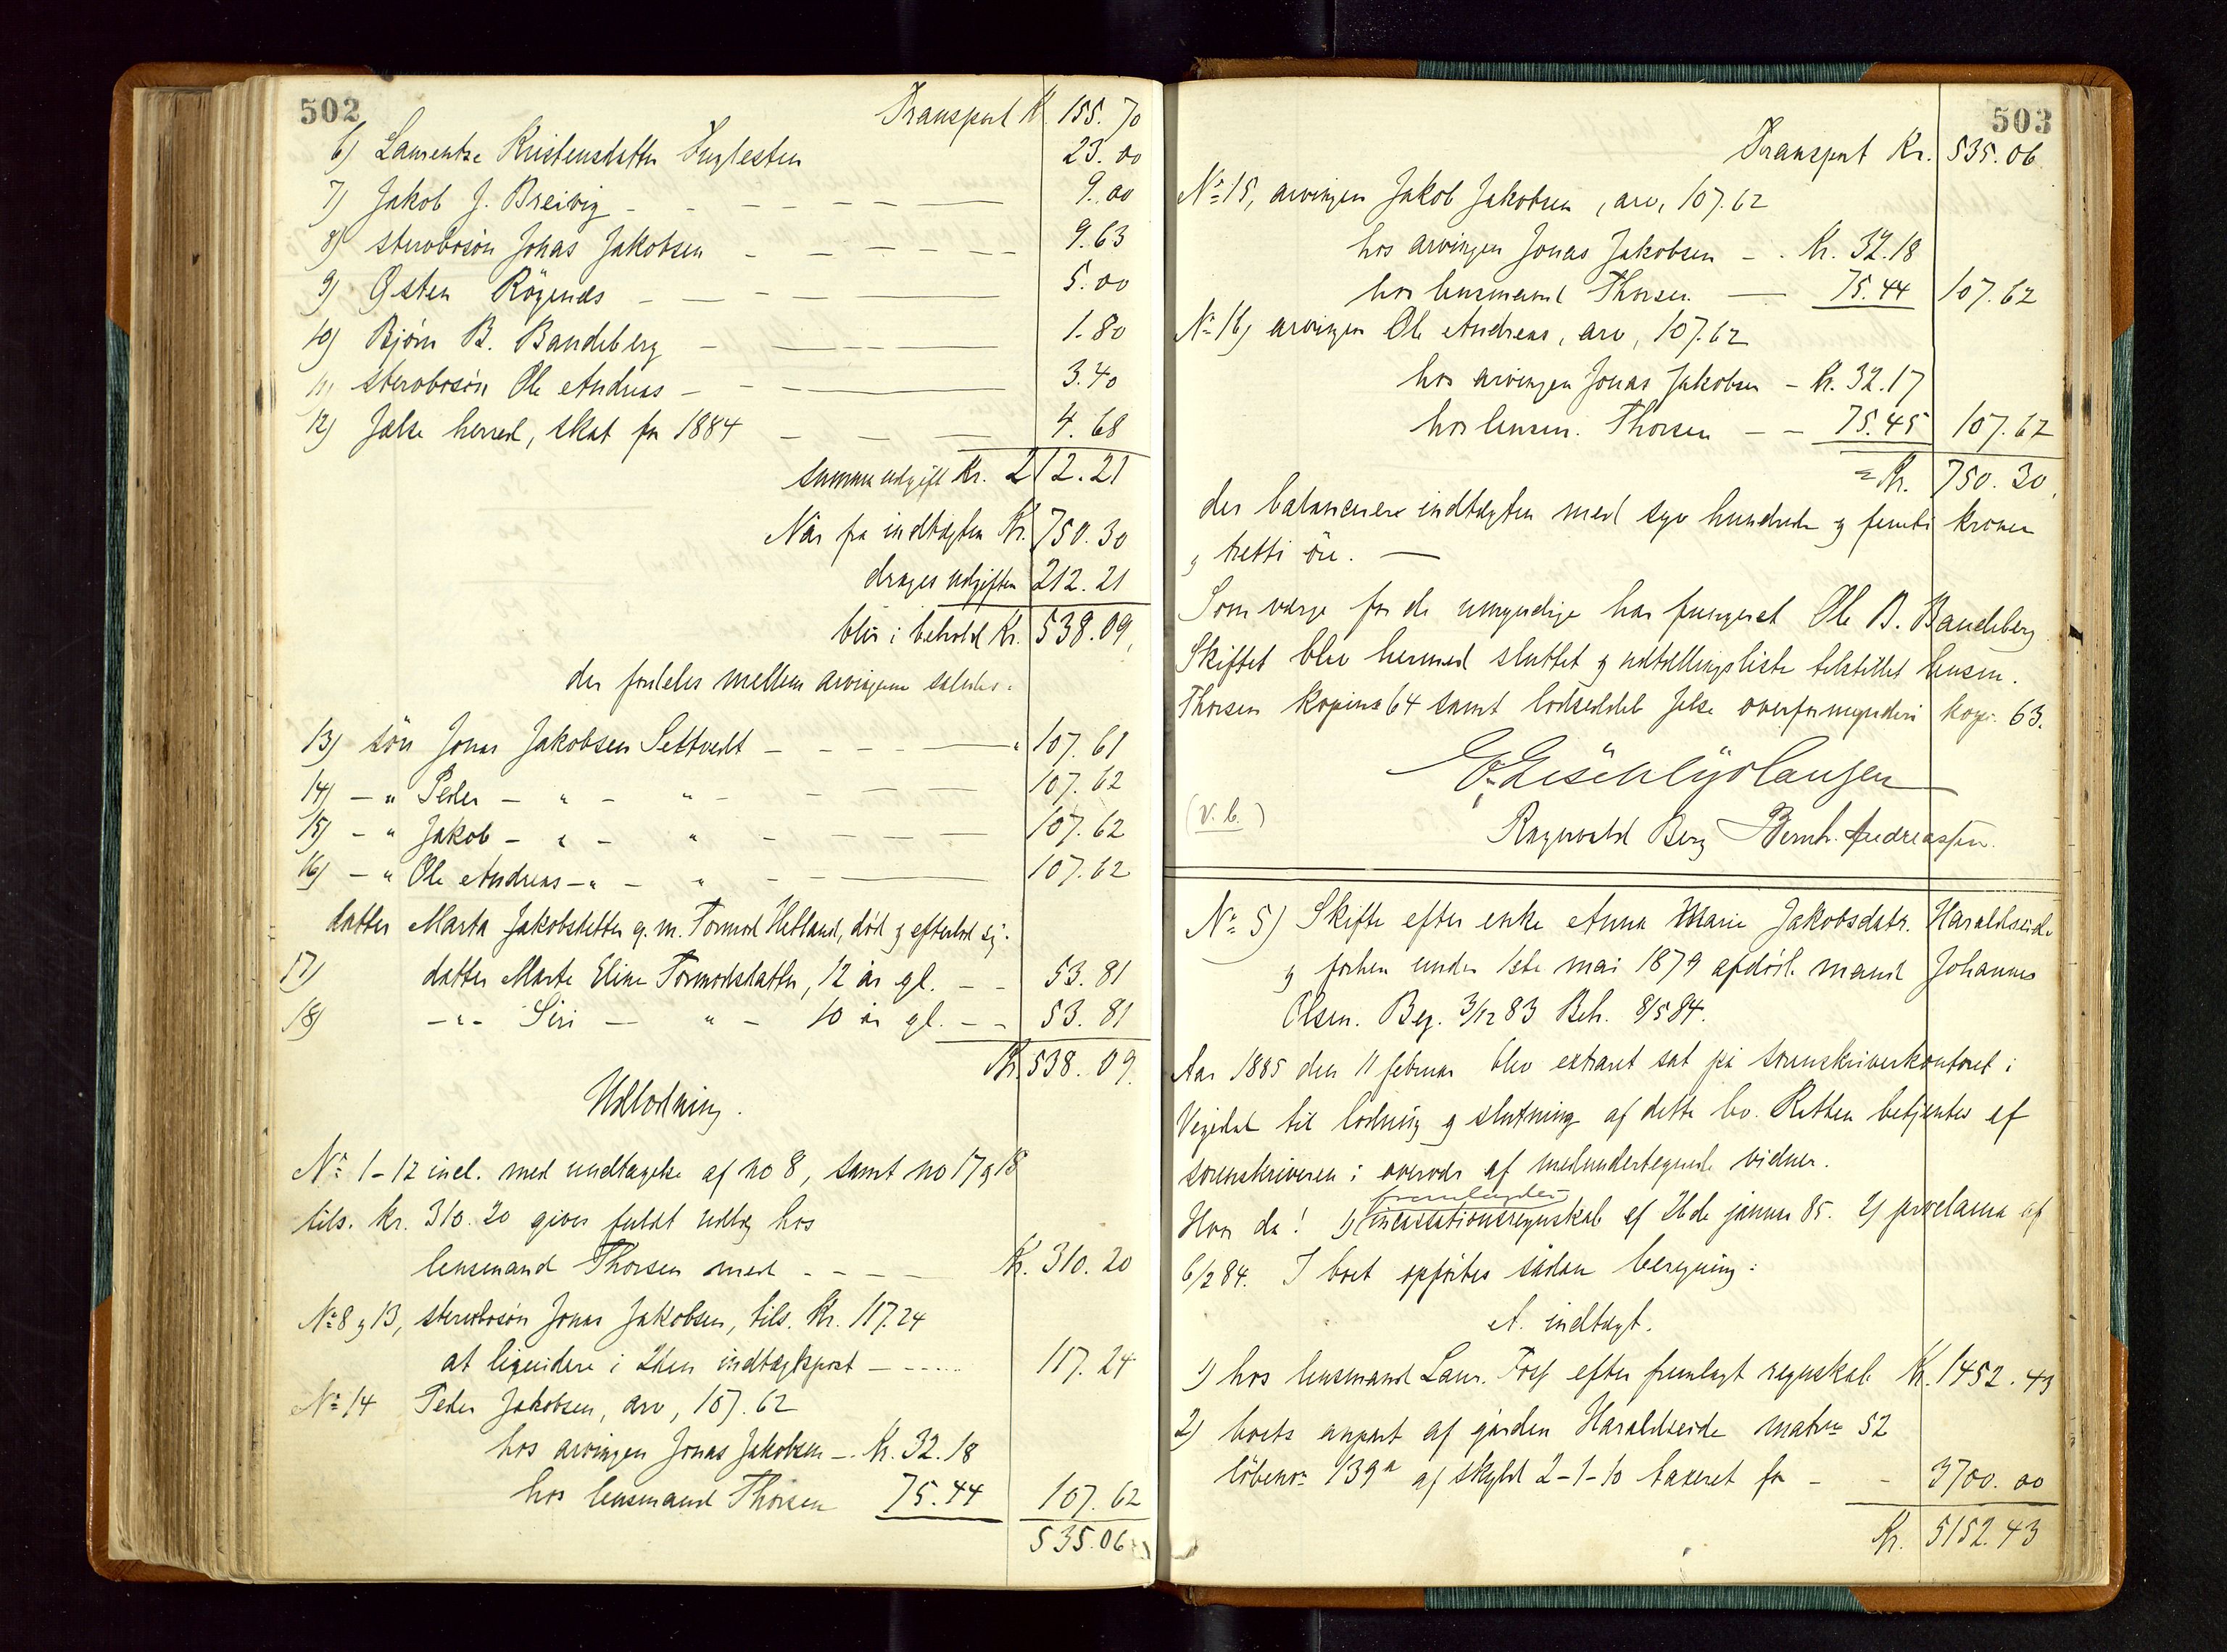 502
Transport Kr. 155.70
6) Laurentse Kristensdatter 23.00
7) Jakob J. Breivig - 9.00
8) sterbosön Jonas Jakobsen - 9.63
9) Østen - 5.00
10) Bjørn B. Bandeberg - 1.80
11) sterbosön Ole Andreas - 3.40
12) Jælse herred, skat for 1884 - 4.68
summa udgift Kr. 212.21
Når fra indtægten Kr. 750.30
drages udgiften 212.21
blir i behold Kr. 538.09,
der fordeles mellem arvingerne således:
13) sön Jonas Jakobsen Settvedt - 107.61
14) - " Peder - " - " - 107.62
15) - " Jakob - " - " - 107.62
16) - " Ole Andreas - " - " - 107.62
datter Marta Jakobsdatter g. m. Tormod Hetland, död og efterlod sig:
17) datter Marte Eline Tormodsdatter, 12 år gl. - - 53.81
18) - " - Siri - " - 10 år gl. - - 53.81
Kr. 538.09.
Udlodning.
No 1-12 incl. med undtagelse af no 8, samt no 17 og 18
tils. kr. 310.20 gives fuldt udlæg hos
lensmand Thorsen med - - - - Kr. 310.20
No 8 og 13, sterbosön Jonas Jakobsen, tils. Kr. 117.24
at liquidere i 2den indtægtspost - 117.24
No 14 Peder Jakobsen, arv, 107.62
hos arvingen Jonas Jakobsen - Kr. 32.18
hos lensmand Thorsen 75.44 107.62
535.06
503
Transport Kr. 535.06
No 15, arvingen Jakob Jakobsen, arv, 107.62
hos arvingen Jonas Jakobsen - Kr. 32.18
hos lensmand Thorsen - 75.44 107.62
No 16) arvingen Ole Andreas, arv, 107.62
hos arvingen Jonas Jakobsen - Kr. 32.17
hos lensm. Thorsen - - 75.45 107.62
= Kr. 750.30,
der balancerer indtægten med syv hundrede og femti kroner
og tretti öre. -
Som værge for de umyndige har fungeret Ole B. Bandeberg.
Skiftet blev hermed sluttet og udtællingsliste tilstillet lensm.
Thorsen kopi no 64 samt lodseddel Jelse overformynderi kopi 63.
(v. b.)
Ragnvald Berg Bernh. Andreassen.
No 5) Skifte efter enke Anna Marie Jakobsdatr. Haraldseide
og forhen under 1ste mai 1879 afdöde mand Johannes
Olsen. Beg. 3/12 83 Beh. 8/5 84.
Aar 1885 den 11 februar blev extraret sat på sorenskriverkontoret i
Vegedal til lodning og slutning af dette bo. Retten betjentes af
sorenskriveren i overvær af medundertegnede vidner.
Hvor da! fremlagdes 1) incassationsregnskab af 26de januar 85. 2) proclama af
6/2 84. I boet opförtes sådan beregning:
A. indtægt.
1) hos lensmand Laur. Foss efter fremlagt regnskab Kr. 1452.43
2) boets anpart af gården Haraldseide matr no 52
löbeno 139a af skyld 2-1-10 taxeret for - - 3700.00
Kr. 5152.43